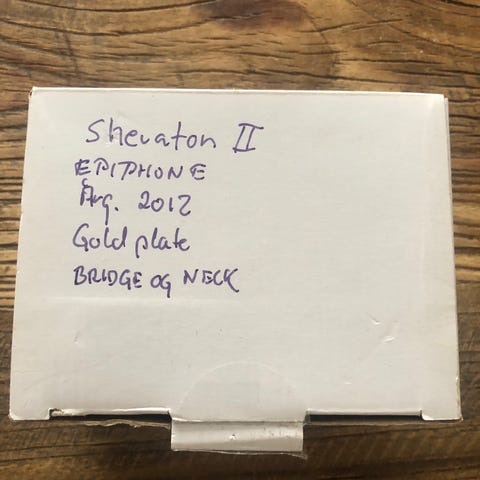 Sheraton II
EPIPHONE
Årg. 2012
Gold plate
BRIDGE OG NECK